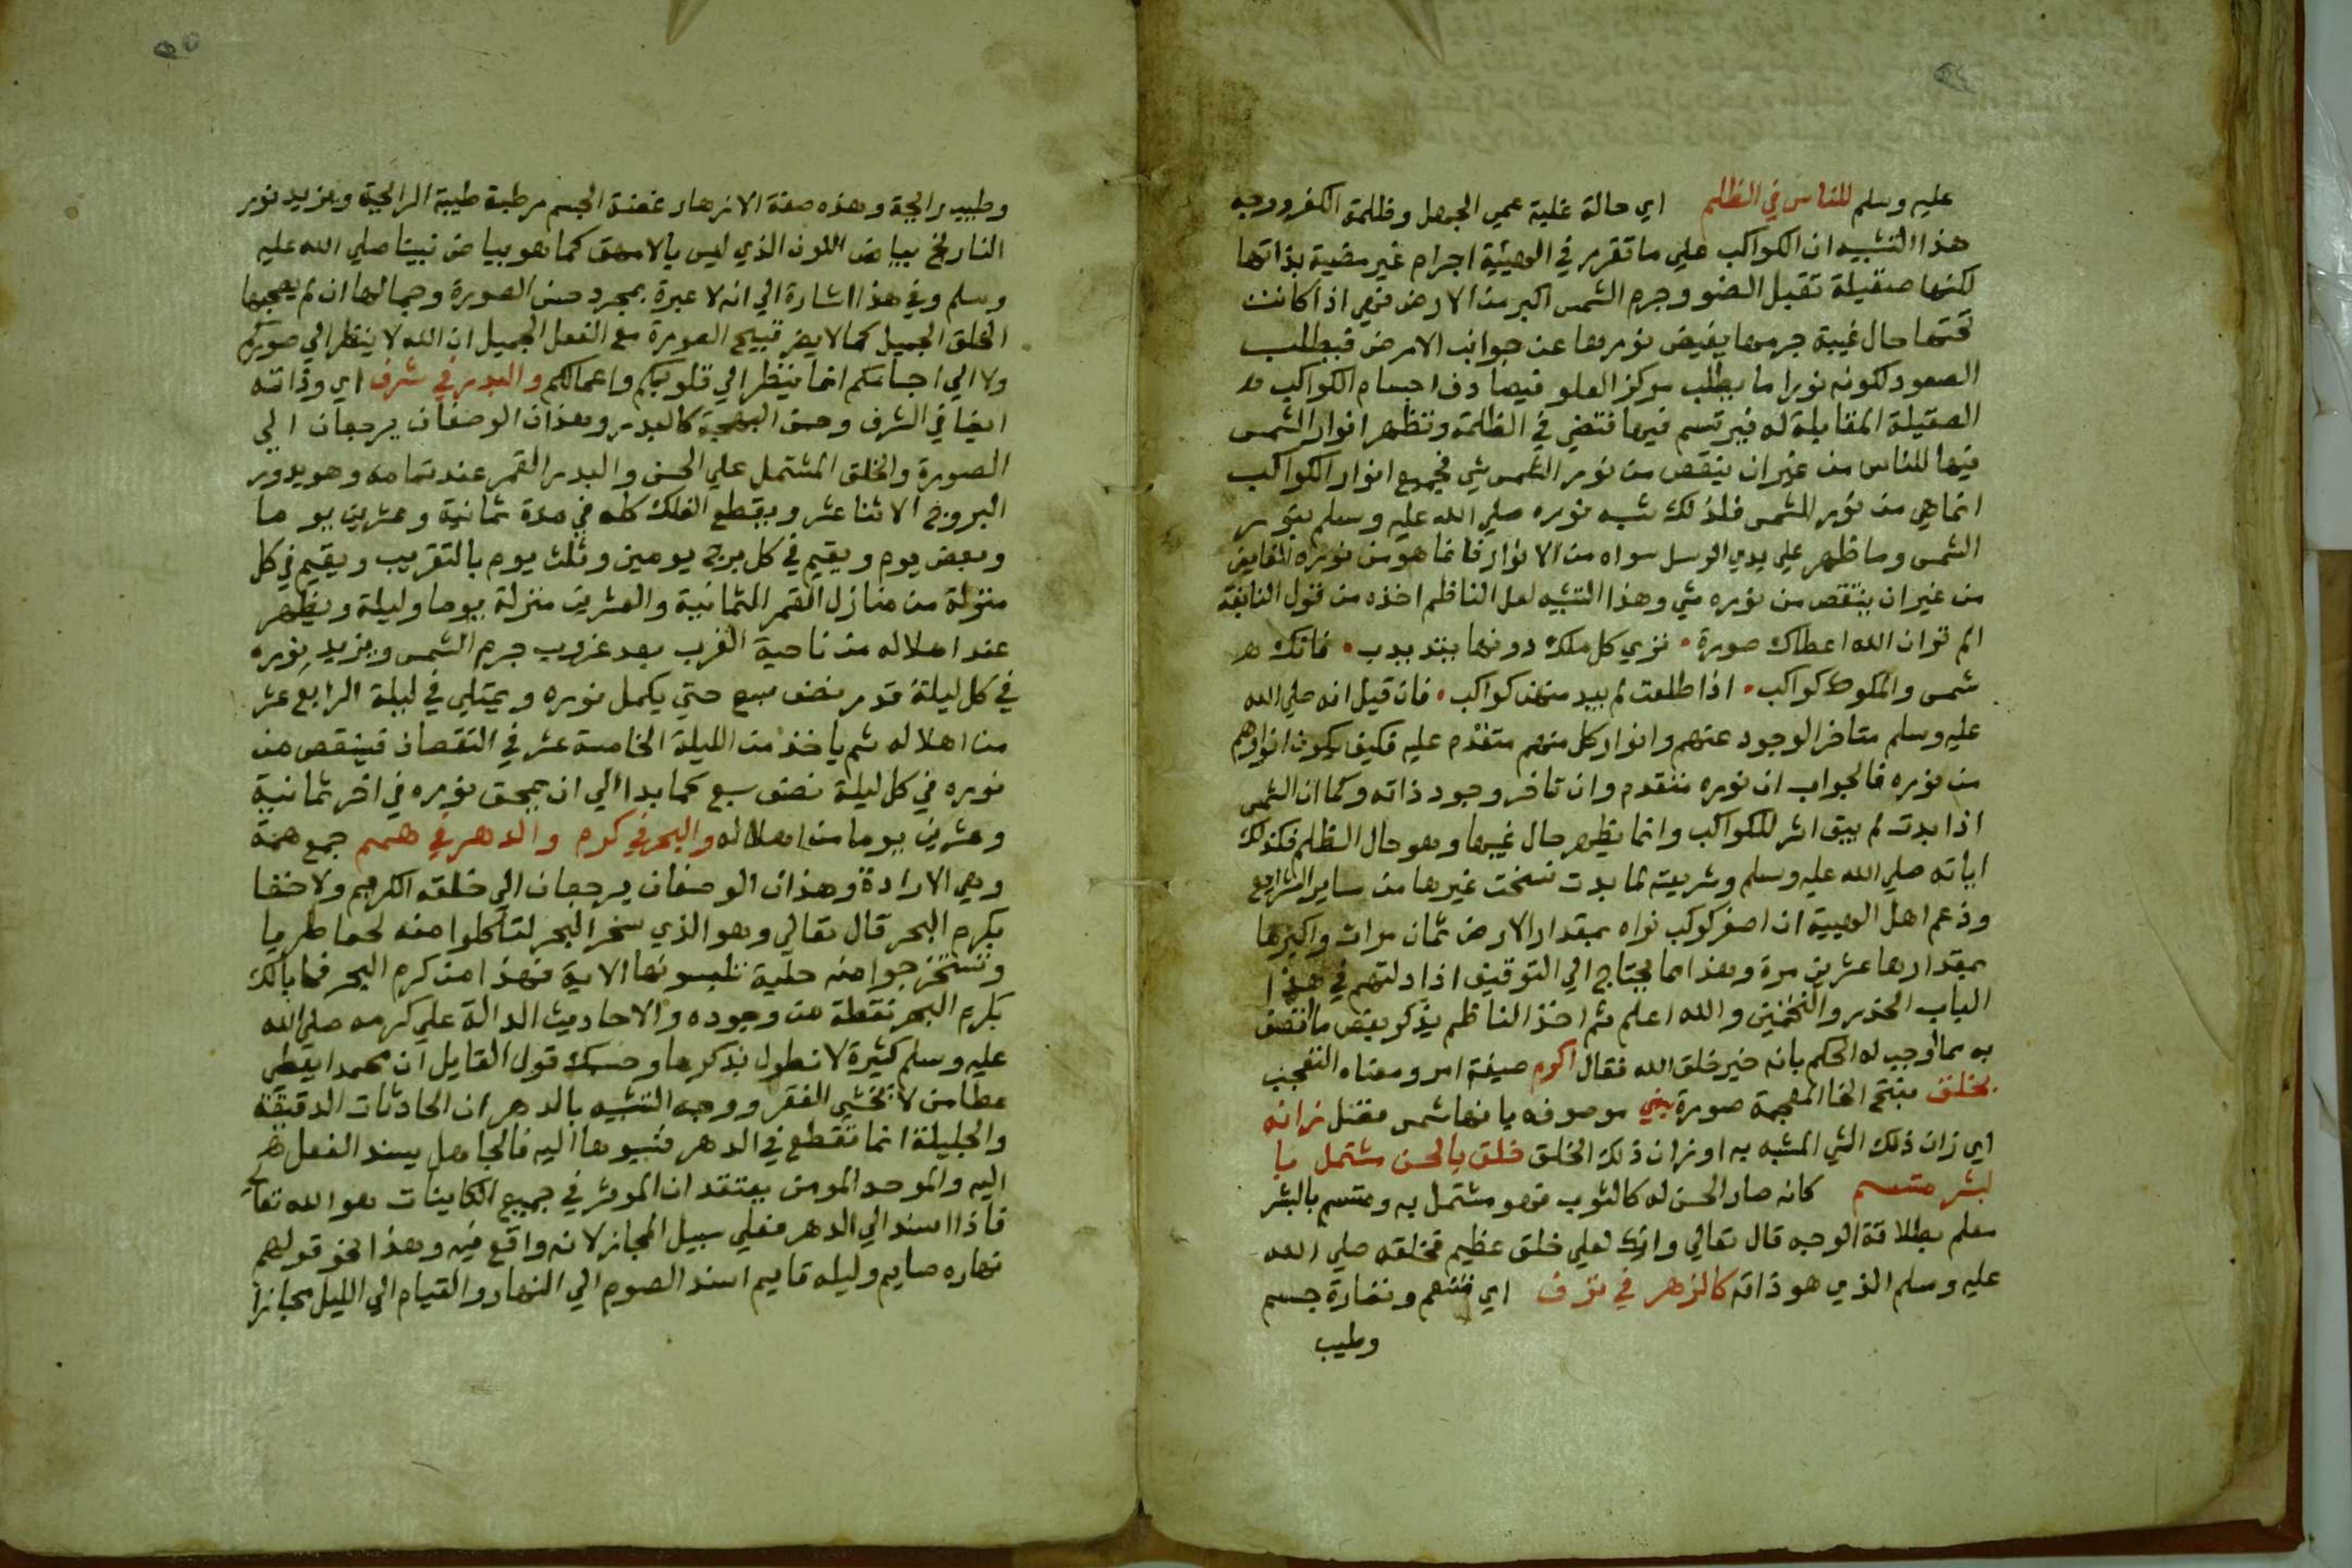 عليه وسلم للناس في الظلم اي حالة غلبة عمي الجهل وظلمة الكفر ووجه
هذا التشبيه ان الكواكب علي ما تقرر في الهيئة اجرام غير مضية بذاتها
لكنها صقيلة تقبل الضو وجرم الشمس اكبر من الارض فهي اذا كانت
تحتها حال غيبة جرمها يفيض نورها عن جوانب الارض فيطلب
الصعود لكونه نورا ما يطلب مركز العلو فيصادف اجسام الكواكب
الصقيلة المقابلة له فيرتسم فيها فتضي في الظلمة وتظهر انوار الشمس
فيها للناس من غير ان ينقص من نور الشمس شي فجميع انوار الكواكب
انما هي من نور الشمس فلذلك شبه نوره صلي الله عليه وسلم بنور
الشمس وما ظهر علي يدي الرسل سواه من الانوار فانما هو من نوره الفايض
من غير ان ينتقص من نوره شي وهذا التشبيه لعل الناظم اخذه من قول النابغة
الم تر ان الله اعطاك صورة • تري كل ملك دونها يتذبذب • فانك
شمس والملوك كواكب • اذا طلعت لم يبد منهن كواكب • فان قيل انه صلي الله
عليه وسلم متاخر الوجود عنهم وانوار كل منهم متقدم عليه فكيف يكون انوارهم
من نوره فالجواب ان نوره متقدم وان تاخر وجود ذاته وكما ان الشمس
اذا بدت لم يبق اثر للكواكب وانما يظهر حال غيبها وهو حال الظلم فكذلك
اياته صلي الله عليه وسلم وشريعته لما بدت نسخت غيرها من ساير الشرايع
وزعم اهل الهيية ان اصغر كوكب نراه بمقدار الارض ثمان مرات واكبرها
بمقدارها عشرين مرة وهذا مما يحتاج الي التوقيف اذ ادلتهم في هذا
الباب الحذر والتخمين والله اعلم ثم اخذ الناظم يذكر بعض ما اتصف
به مما اوجب له الحكم بانه خير خلق الله فقال اكرم صيغة امر ومعناه التعجب
بخلق بفتح الخا المعجمة صورة نبي موصوفه بانها شمس فضل زانه
اي زان ذلك الشي المشبه به او زان ذلك الخلق خلق بالحسن مشتمل با
لبشر متسم كانه صار الحسن له كالثوب فهو مشتمل به ومتسم بالبشر
معلم بطلاقة الوجه قال تعالي وانك لعلي خلق عظيم فخلقه صلي الله
عليه وسلم الذي هو ذاته كالزهر في ترف اي تنعم ونضارة جسم
وطيب
وطيب رايحة وهذه صفة الازهار غضة الجسم رطبة طيبة الرايحة ومزيد نور
النار بخ بياض اللون الذي ليس بالامهق كما هو بياض نبينا صلي الله عليه
وسلم وفي هذا اشارة الي انه لا عبرة بمجرد حسن الصورة وجمالها ان لم يصحبها
الخلق الجميل كما لا يضر قبيح الصورة مع الفعل الجميل ان الله لا ينظر الي صوركم
ولا الي اجسامكم انما ينظر الي قلوبكم واعمالكم والبدر في شرف اي وذاته
ايضا في الشرف وحسن البهجة كالبدر وهذان الوصفان يرجعان الي
الصورة والخلق المشتمل علي الحسن والبدر القمر عند تمامه وهو يدور
البروج الاثنا عشر ويقطع الفلك كله في مدة ثمانية وعشرين يوما
وبعض يوم ويقيم في كل برج يومين وثلث يوم بالتقريب ويقيم في كل
منزلة من منازل القمر الثمانية والعشرين منزلة يوما وليلة ويظهر
عند اهلاله من ناحية الغرب بعد غروب جرم الشمس ويزيد نوره
في كل ليلة قدر نصف سبع حتي يكمل نوره ويمتلي في ليلة الرابع عشر
من اهلاله ثم ياخذ من الليلة الخامسة عشر في النقصان فينقص من
نوره في كل ليلة نصف سبع كما بدا الي ان يمحق نوره في اخر ثمانية
وعشرين يوما من اهلاله والبحر في كرم والدهر في همم جمع همة
وهي الارادة وهذان الوصفان يرجعان الي خلقه الكريم ولا خفا
بكرم البحر قال تعالي وهو الذي سخر البحر لتاكلوا منه لحما طريا
وتستخرجوا منه حلية تلبسونها الاية فهذا من كرم البحر فما بالك
بكرم البحر نقطة من وجوده والاحاديث الدالة علي كرمه صلي الله
عليه وسلم كثيرة لا نطول بذكرها وحسبك قول القايل ان محمدا يعطي
عطا من لا يخشي الفقر ووجه التشبيه بالدهر ان الحادثات الدقيقة
والجليلة انما تقطع في الدهر فنسبوها اليه فالجاهل يسند الفعل
اليه والموحد المومن يعتقد ان الموثر في جميع الكاينات هو الله تعالي
فاذا اسند الي الدهر فعلي سبيل المجاز لانه واقع فيه وهذا نحو قولهم
نهاره صايم وليله قايم اسند الصوم الي النهار والقيام الي الليل مجازا